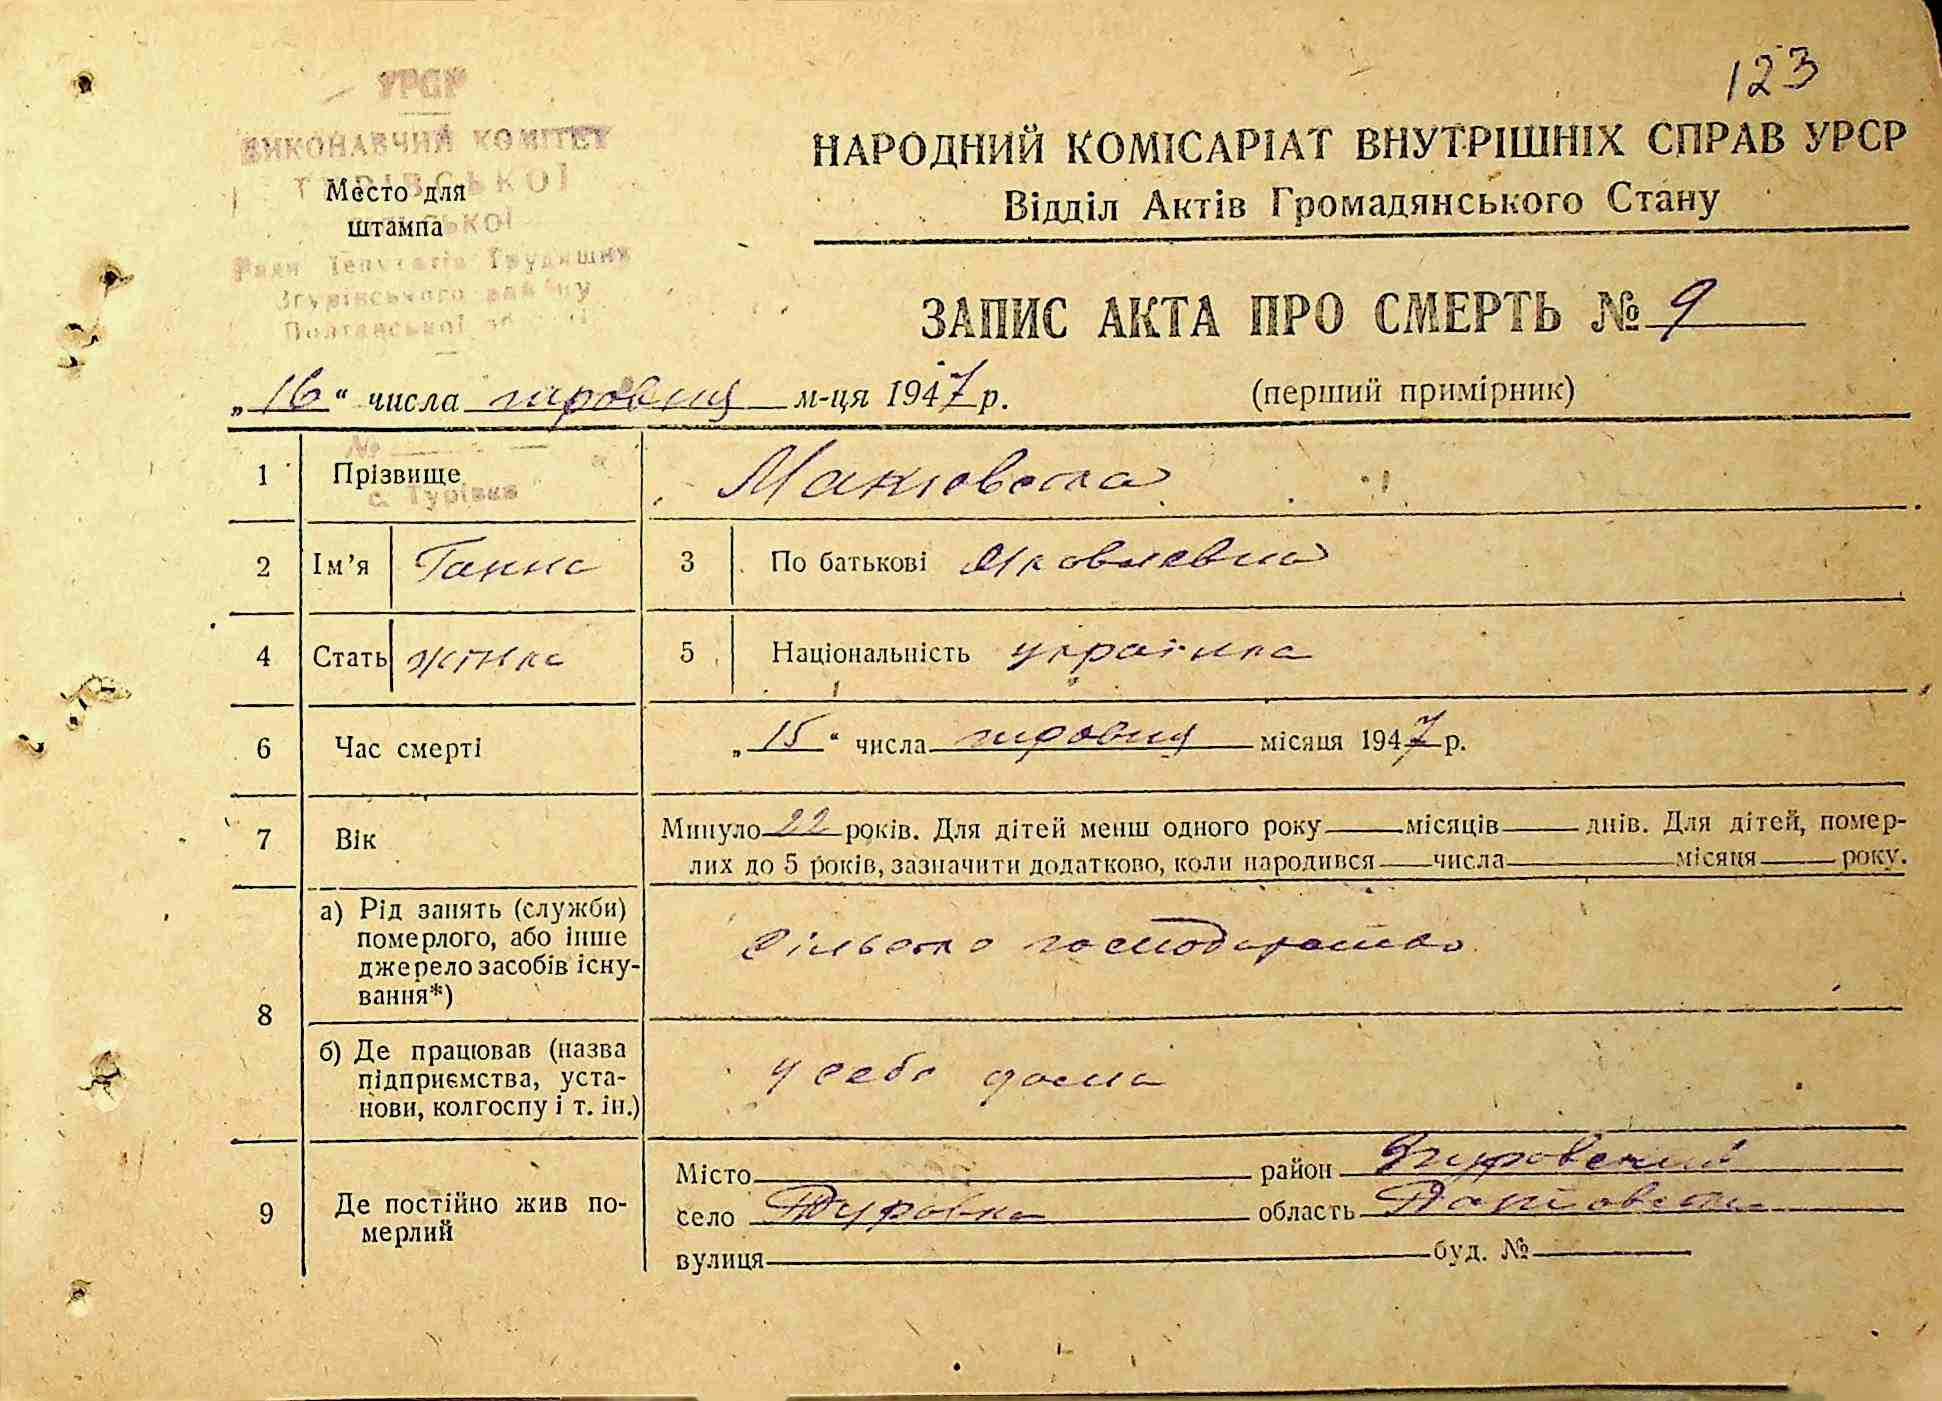 123
УРСР
ВИКОНАВЧИЙ КОМІТЕТ
ТУРІВСЬКОЇ
Место для
штампа
Ради Депутатів Трудящих
Згурівського району
Полтавської області
НАРОДНИЙ КОМІСАРІАТ ВНУТРІШНІХ СПРАВ УРСР
Відділ Актів Громадянського Стану
ЗАПИС АКТА ПРО СМЕРТЬ № 9
„16“ числа травня м-ця 1947 р.
(перший примірник)
№
с. Турівка
1 Прізвище Макиовска
2 Ім’я Ганна 3 По батькові Яковлевна
4 Стать жінка 5 Національність українка
6 Час смерті „15“ числа травня місяця 1947 р.
7 Вік Минуло 22 років. Для дітей менш одного року місяців днів. Для дітей, помер-
лих до 5 років, зазначити додатково, коли народився числа місяця року.
8 а) Рід занять (служби)
померлого, або інше
джерело засобів існу-
вання*)
сільське господарство
б) Де працював (назва
підприємства, уста-
нови, колгоспу і т. ін.)
у себе дома
9 Де постійно жив по-
мерлий
Місто район Згуровский
село Туровка область
вулиця буд. №